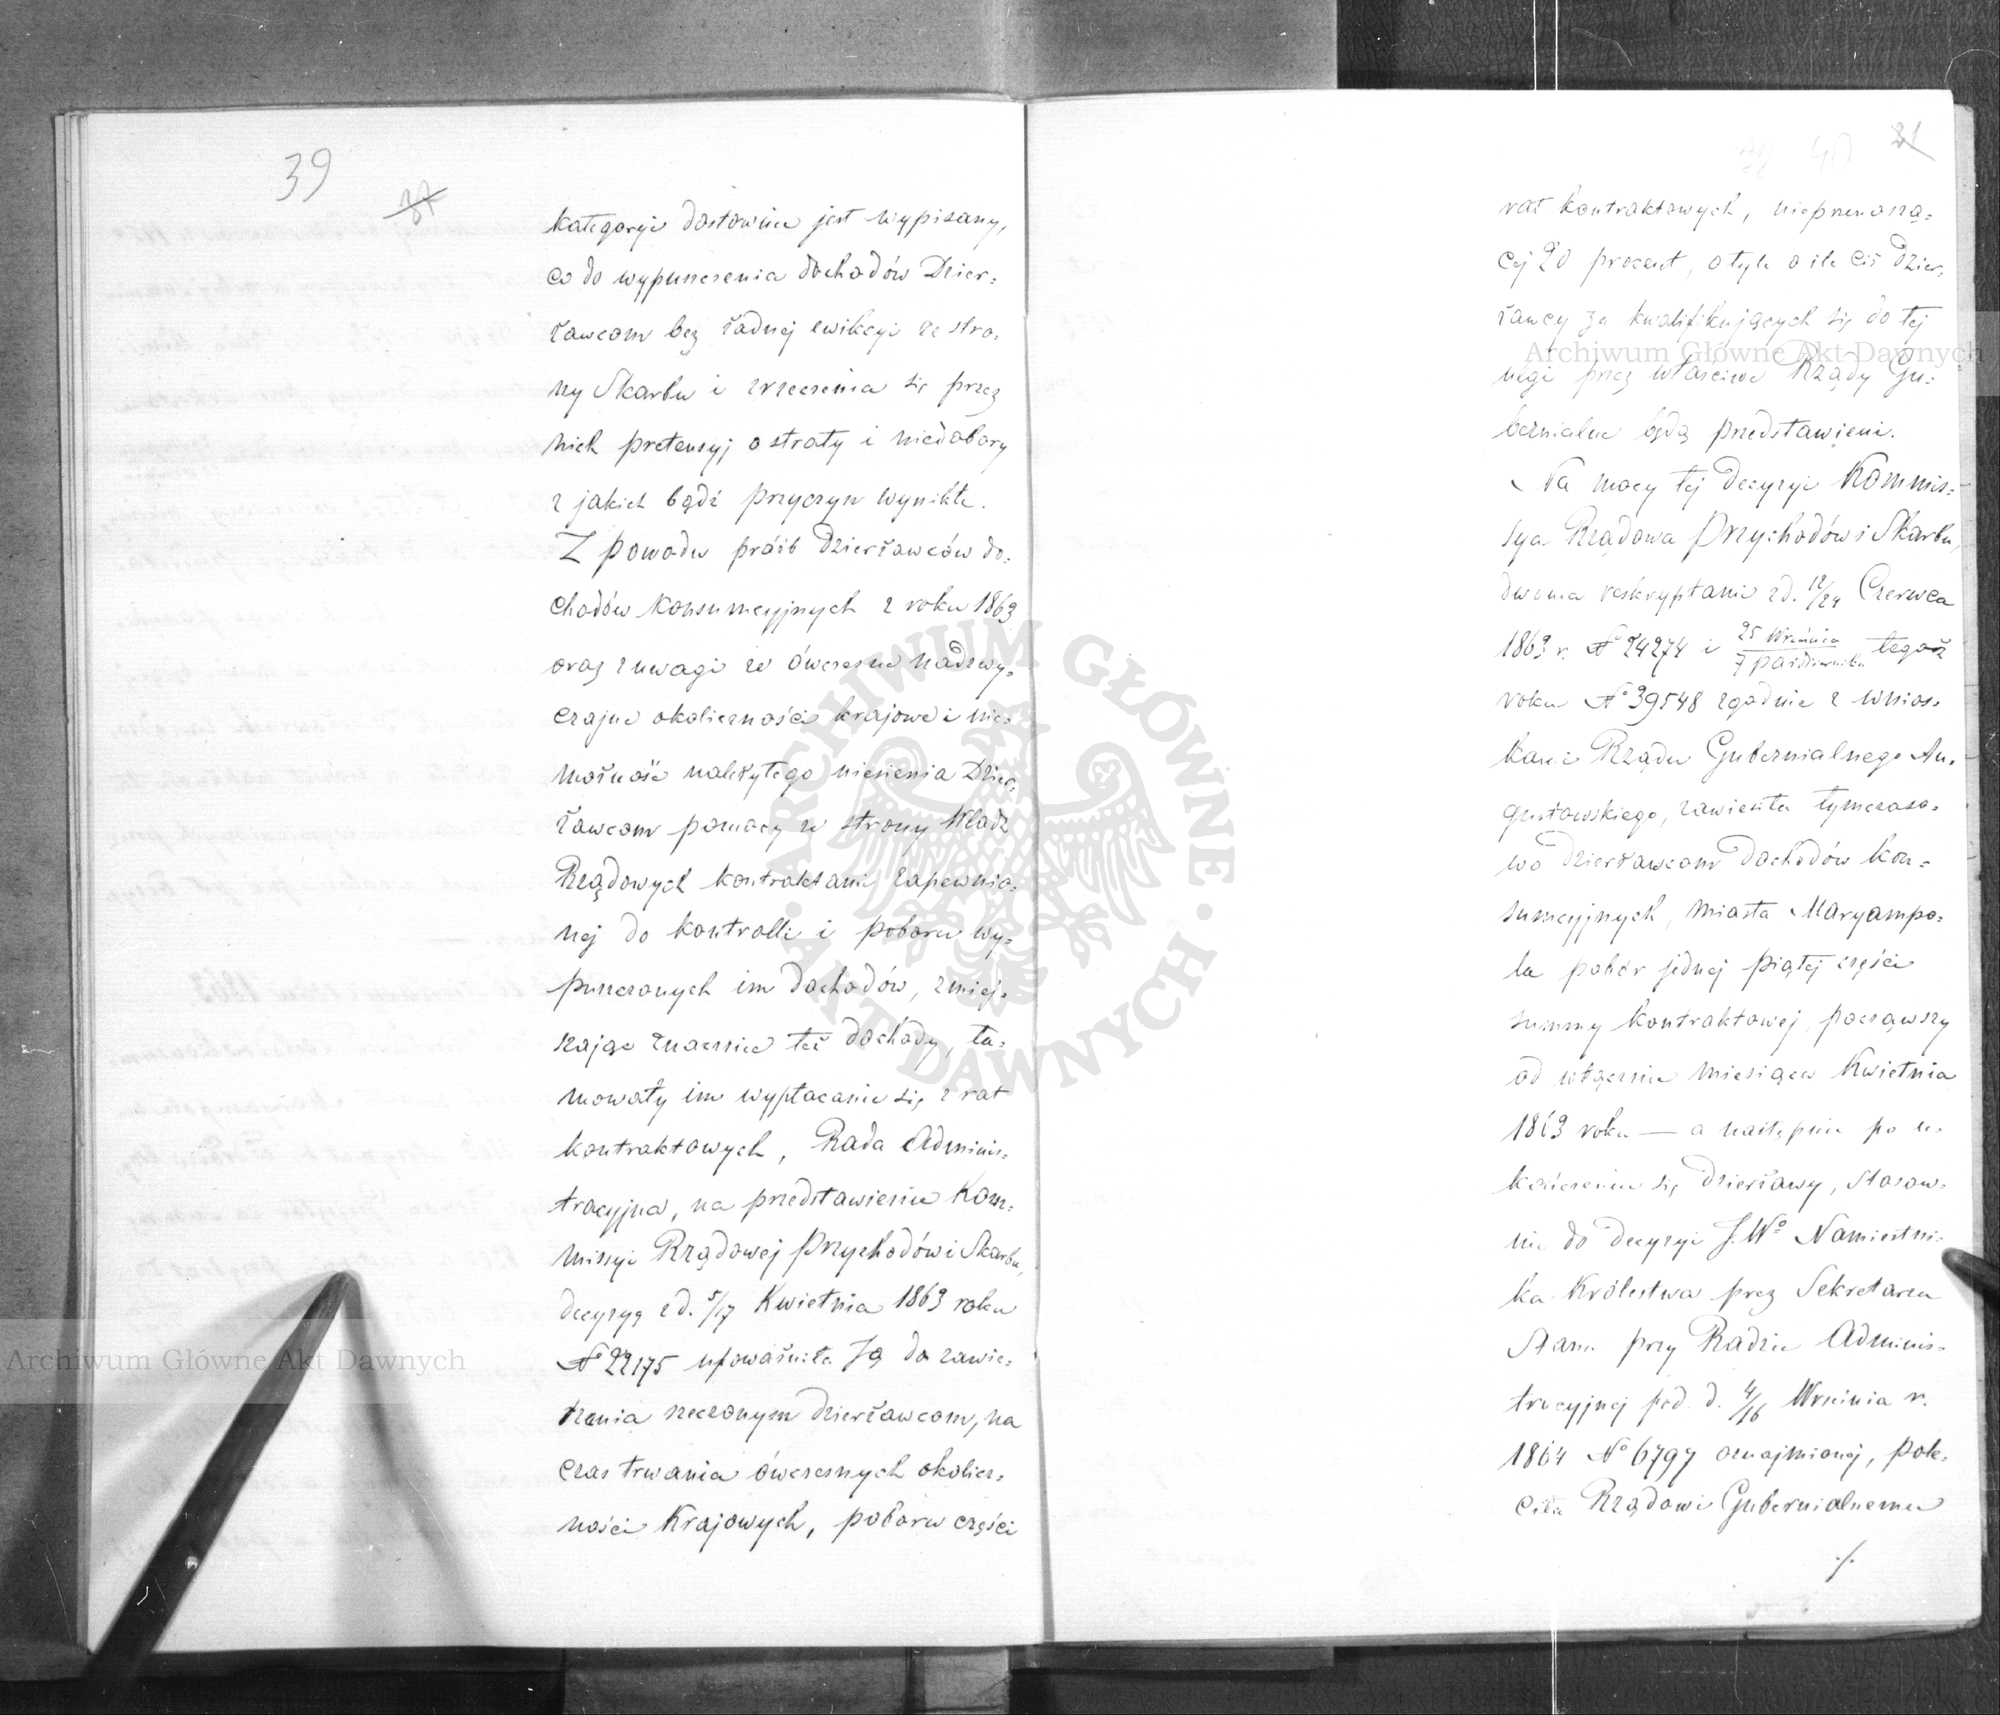 39
37
kategoryi dosłownie jest wypisany,
co do wypuszczenia dochodów Dzier-
żawcom bez żadnej ewikcyi ze stro-
ny Skarbu i zrzeczenia się przez
nich pretensyj o straty i niedobory
z jakich bądź przyczyn wynikłe.
Z powodu próśb Dzierżawców do-
chodów konsumcyjnych z roku 1863
oraz z uwagi że ówczesne nadzwy-
czajne okoliczności krajowe i nie-
możność należytego niesienia Dzier-
żawcom pomocy ze strony Władz
Rządowych kontraktami zapewnio-
nej do kontrolli i poboru wy-
puszczonych im dochodów, zmiej-
szając znacznie też dochody, ta-
mowały im wypłacanie się z rat
kontraktowych, Rada Adminis-
tracyjna, na przedstawienie Kom-
missyi Rządowej Przychodów i Skarbu,
decyzyą z d. 5/17 Kwietnia 1863 roku
№ 22175 upoważniła Ją do zawie-
szenia rzeczonym dzierżawcom, na
czas trwania ówczesnych okolicz-
ności Krajowych, poboru części
31
32 40
rat kontraktowych, nieprzenoszą-
cej 20 procent, o tyle o ile ciż Dzier-
żawcy za kwalifikujących się do tej
ulgi przez właściwe Rządy Gu-
bernialne będą przedstawieni.
Na mocy tej Decyzyi Kommis-
sya Rządowa Przychodów i Skarbu,
dwoma reskryptami z d. 12/24 Czerwca
1863 r. № 24274 i 25 Września / 7 Października tegoż
roku № 39548 zgodnie z wnios-
kami Rządu Gubernialnego Au-
gustowskiego, zawiesiła tymczaso-
wo Dzierżawcom Dochodów kon-
sumcyjnych, miasta Maryampo-
la pobór jednej piątej części
summy kontraktowej, począwszy
od włącznie miesiąca Kwietnia
1863 roku — a następnie po u-
kończeniu się dzierżawy, stosow-
nie do decyzyi J.Wo Namiestni-
ka Królestwa przez Sekretarza
Stanu przy Radzie Adminis-
tracyjnej pod d. 4/16 Września r.
1864 № 6797 oznajmionej, pole-
ciła Rządowi Gubernialnemu
./.
Archiwum Główne Akt Dawnych
Archiwum Główne Akt Dawnych
ARCHIWUM GŁÓWNE · AKT DAWNYCH ·